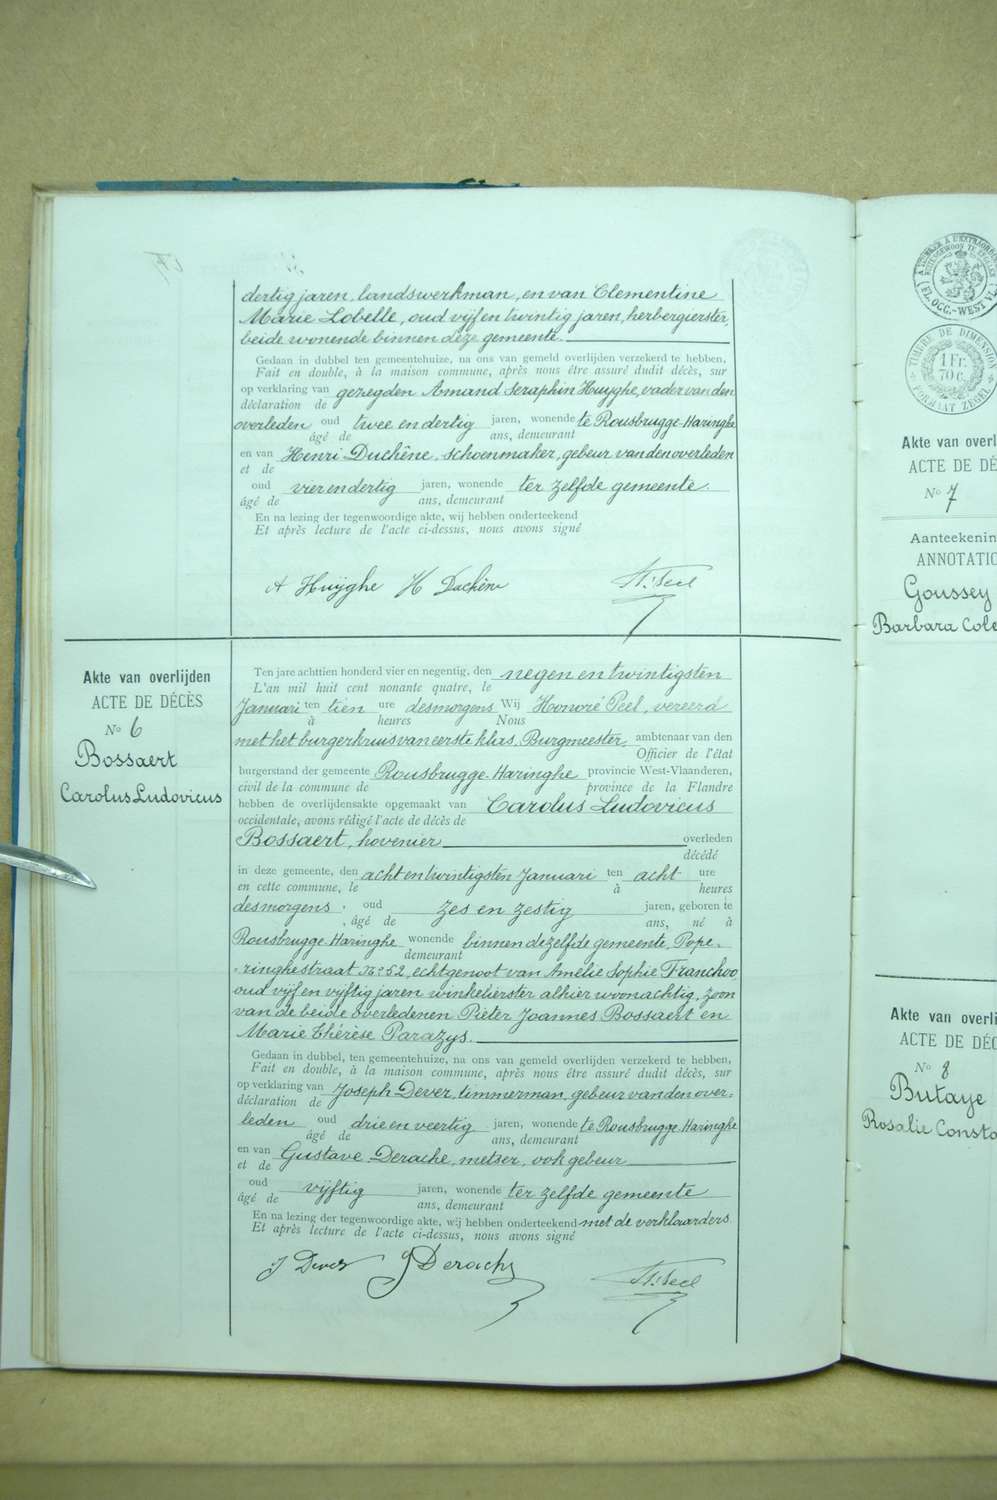 dertig jaren, landswerkman, en van Clementine
Marie Lobelle, oud vijf en twintig jaren, herbergierster,
beide wonende binnen deze gemeente.
Gedaan in dubbel ten gemeentehuize, na ons van gemeld overlijden verzekerd te hebben,
Fait en double, à la maison commune, après nous être assuré dudit décès, sur
op verklaring van gezegden Amand Seraphin Huyghe, vader van den
déclaration de
overleden oud twee en dertig jaren, wonende te Rousbrugge-Haringhe
âgé de ans, demeurant
en van Henri Duchêne, schoenmaker, gebeur van den overleden
et de
oud vier en dertig jaren, wonende ter zelfde gemeente.
âgé de ans, demeurant
En na lezing der tegenwoordige akte, wij hebben onderteekend
Et après lecture de l'acte ci-dessus, nous avons signé
A Huÿghe H Duchêne
Akte van overlijden
ACTE DE DÉCÈS
Nº 6
Bossaert
Carolus Ludovicus
Ten jare achttien honderd vier en negentig, den negen en twintigsten
L'an mil huit cent nonante quatre, le
Januari ten tien ure des morgens Wij Honoré Peel, vereerd
à heures Nous
met het burgerkruis van eerste klas, Burgmeester, ambtenaar van den
Officier de l'état
burgerstand der gemeente Rousbrugge-Haringhe provincie West-Vlaanderen,
civil de la commune de province de la Flandre
hebben de overlijdensakte opgemaakt van Carolus Ludovicus
occidentale, avons rédigé l'acte de décès de
Bossaert, hovenier overleden
décédé
in deze gemeente, den acht en twintigsten Januari ten acht ure
en cette commune, le à heures
des morgens, oud zes en zestig jaren, geboren te
, âgé de ans, né à
Rousbrugge-Haringhe wonende binnen dezelfde gemeente, Pope-
demeurant
ringhestraat Nº 52, echtgenoot van Amélie Sophie Franchoo
oud vijf en vijftig jaren winkelierster alhier woonachtig, zoon
van de beide overledenen Pieter Joannes Bossaert en
Marie Thérèse Parazys.
Gedaan in dubbel, ten gemeentehuize, na ons van gemeld overlijden verzekerd te hebben,
Fait en double, à la maison commune, après nous être assuré dudit décès, sur
op verklaring van Joseph Dever, timmerman, gebeur van den over-
déclaration de
leden oud drie en veertig jaren, wonende te Rousbrugge-Haringhe
âgé de ans, demeurant
en van Gustave Derache, metser, ook gebeur
et de
oud vijftig jaren, wonende ter zelfde gemeente
âgé de ans, demeurant
En na lezing der tegenwoordige akte, wij hebben onderteekend met de verklaarders.
Et après lecture de l'acte ci-dessus, nous avons signé
J Dever G Derache
TIMBRE DE DIMENSION
1 Fr.
70 c.
FORMAAT ZEGEL
Akte van overl
ACTE DE DÉ
Nº 7
Aanteekenin
ANNOTATIO
Goussey
Barbara Cole
Akte van overli
ACTE DE DÉC
Nº 8
Butaye
Rosalie Consta